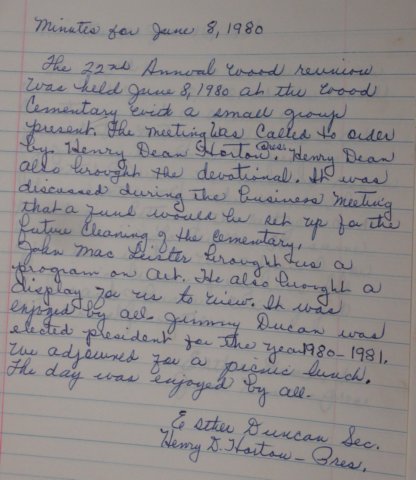 Minutes for June 8, 1980
The 22nd Annual Wood reunion
was held June 8, 1980 at the Wood
Cementary with a small group
present. The meeting was called to order
by Henry Dean Horton, Pres. Henry Dean
also brought the devotional. It was
discussed during the business meeting
that a fund would be set up for the
future cleaning of the cementary.
John Mac Leister brought us a
program on art. He also brought a
display for us to view. It was
enjoyed by all. Jimmy Ducan was
elected president for the year 1980-1981.
We adjourned for a picnic lunch.
The day was enjoyed by all.
Esther Duncan Sec.
Henry D. Horton - Pres.